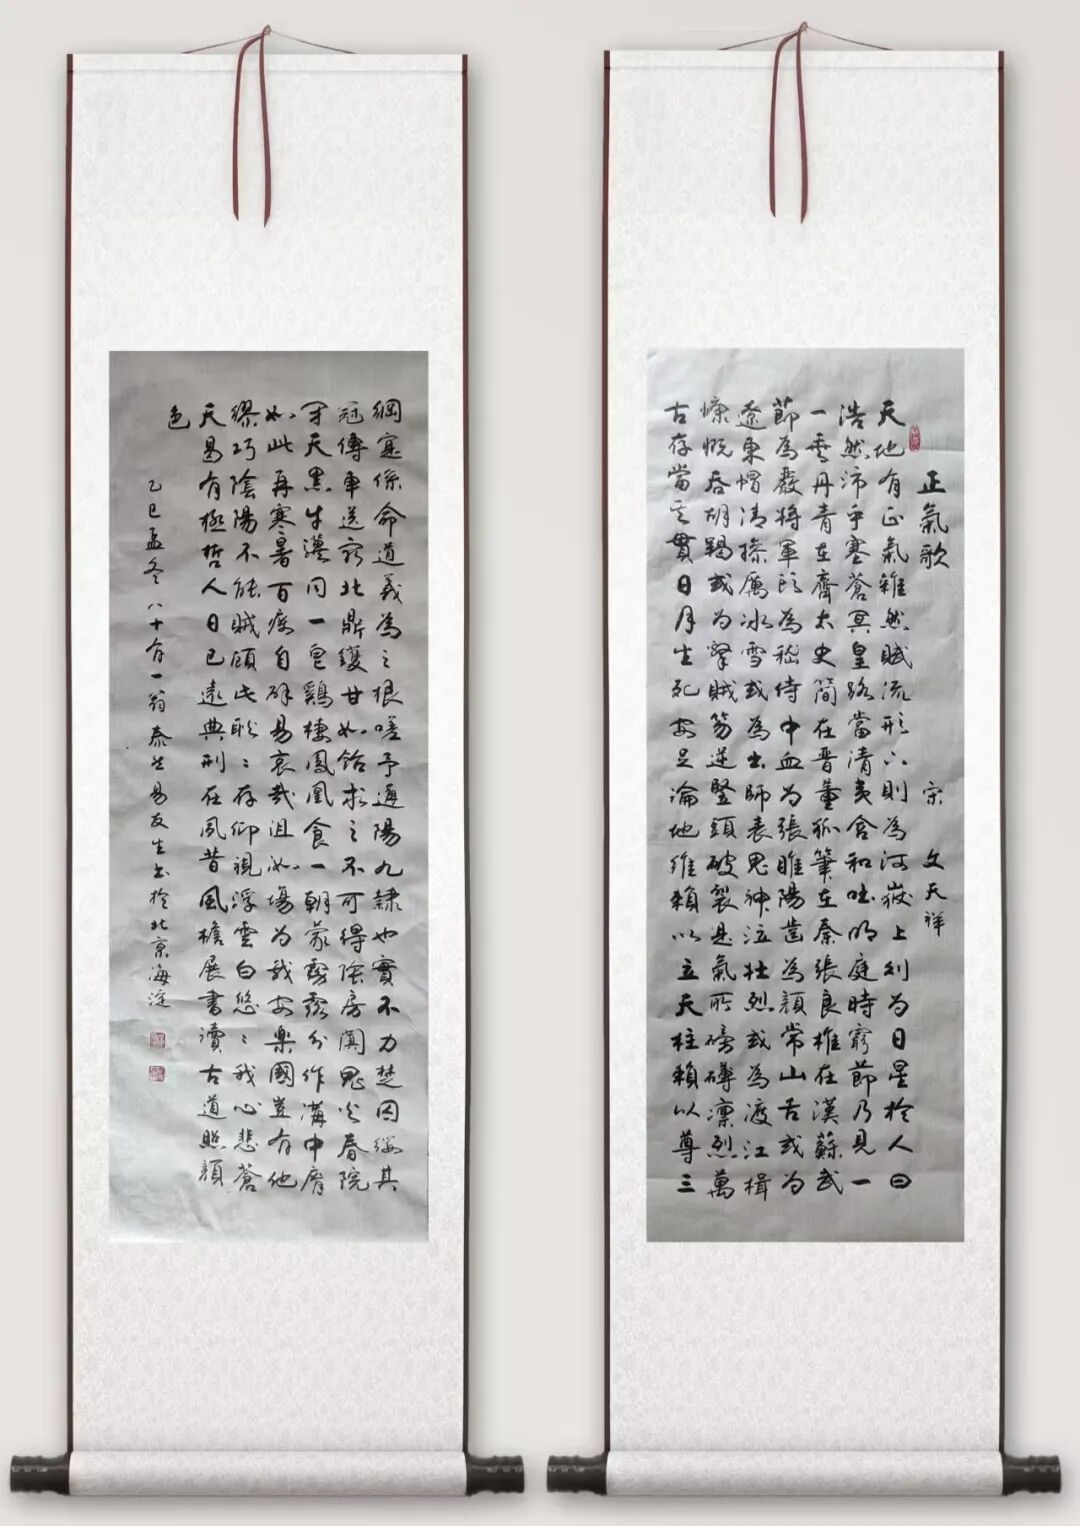 正氣歌 宋 文天祥
天地有正氣雜然賦流形下則為河嶽上則為日星於人曰
浩然沛乎塞蒼冥皇路當清夷含和吐明庭時窮節乃見一
一垂丹青在齊太史簡在晉董狐筆在秦張良椎在漢蘇武
節為嚴將軍頭為嵇侍中血為張睢陽齒為顏常山舌或為
遼東帽清操厲冰雪或為出師表鬼神泣壯烈或為渡江楫
慷慨吞胡羯或為擊賊笏逆豎頭破裂是氣所磅礴凛烈萬
古存當其貫日月生死安足論地維賴以立天柱賴以尊三
綱寔係命道義為之根嗟予遘陽九隸也實不力楚囚纓其
冠傳車送窮北鼎鑊甘如飴求之不可得陰房闃鬼火春院
閉天黑牛驥同一皂鷄棲鳳凰食一朝蒙霧露分作溝中瘠
如此再寒暑百癘自辟易哀哉沮洳場為我安樂國豈有他
繆巧陰陽不能賊顧此耿〻存仰視浮雲白悠〻我心悲蒼
天曷有極哲人日已遠典刑在夙昔風檐展書讀古道照顏
色
乙巳孟冬八十有一翁泰然易友生書於北京海淀